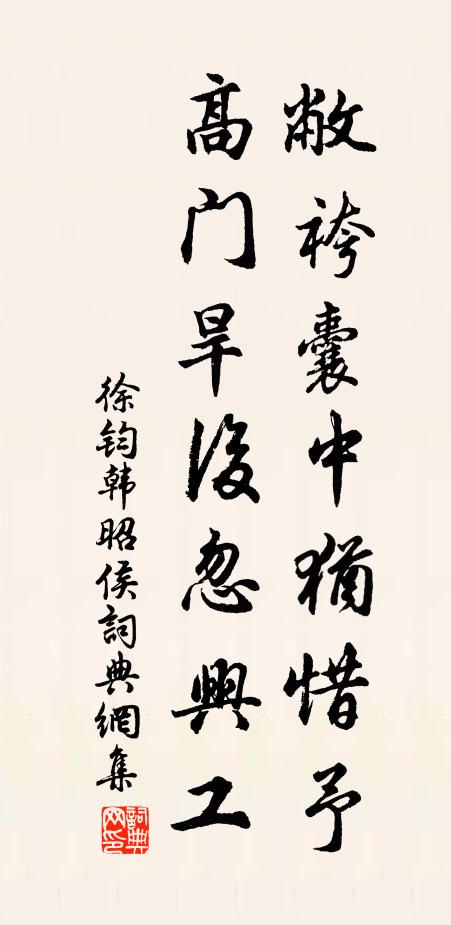 敝袴囊中猶惜予
高门旱後忽興工
徐钧韩昭侯詞典網集
詞典网印